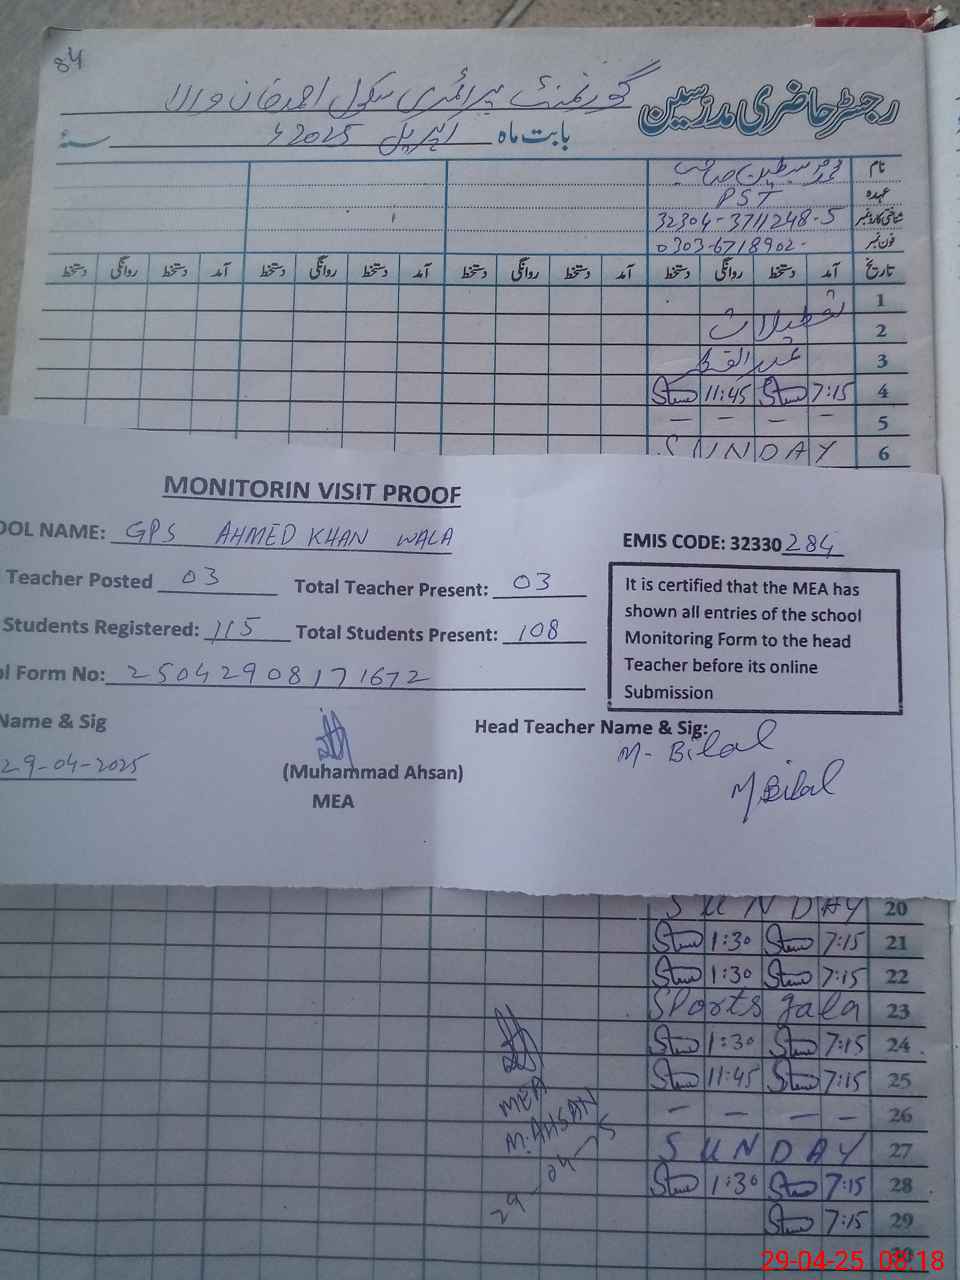 84
رجسٹر حاضری مدرسین گورنمنٹ پرائمری سکول احمد خان والا
بابت ماہ اپریل 2025ء سنہ
نام محمد سبطین صاحب
عہدہ PST
شناختی کارڈ نمبر 32304-3711248-5
فون نمبر 0303-6718902-
تاریخ آمد دستخط روانگی دستخط آمد دستخط روانگی دستخط آمد دستخط روانگی دستخط
1
2 تعطیلات
3 عید الفطر
4 7:15 11:45
5 – – – –
6 SUNDAY
MONITORIN VISIT PROOF
OOL NAME: GPS AHMED KHAN WALA
EMIS CODE: 32330284
Teacher Posted 03 Total Teacher Present: 03
Students Registered: 115 Total Students Present: 108
ol Form No: 25042908171672
It is certified that the MEA has
shown all entries of the school
Monitoring Form to the head
Teacher before its online
Submission
Name & Sig
Head Teacher Name & Sig:
M- Bilal
29-04-2025
(Muhammad Ahsan)
M Bilal
MEA
20 SUNDAY
21 7:15 1:30
22 7:15 1:30
23 Sports gala
24 7:15 1:30
25 7:15 11:45
26 – – – –
27 SUNDAY
28 7:15 1:30
29 7:15
30
MEA
M. AHSAN
29-04-25
29-04-25 08:18